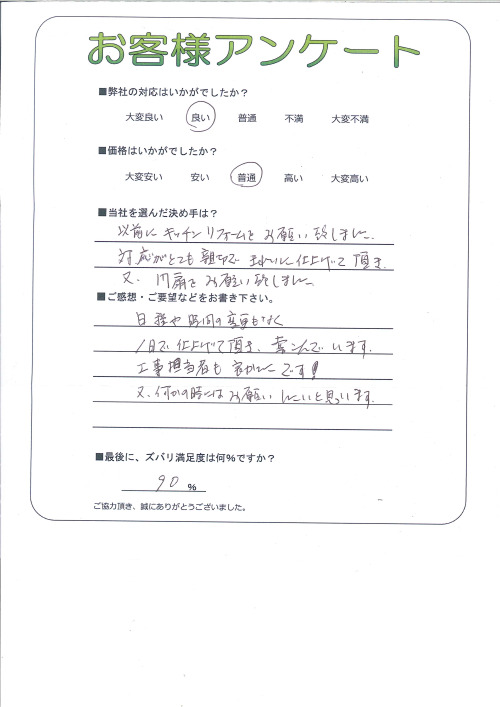 お客様アンケート
■弊社の対応はいかがでしたか？
大変良い 良い 普通 不満 大変不満
■価格はいかがでしたか？
大変安い 安い 普通 高い 大変高い
■当社を選んだ決め手は？
以前に キッチンリフォームを お願い致しました。
対応がとても 親切で きれいに 仕上げて 頂き
又、門扉を お願い致しました
■ご感想・ご要望などをお書き下さい。
日程や 時間の 変更もなく
1日で 仕上げて 頂き、喜こんでいます。
工事担当者も 良かったです!
又、何かの時には お願い したいと思っています。
■最後に、ズバリ満足度は何%ですか？
90 %
ご協力頂き、誠にありがとうございました。